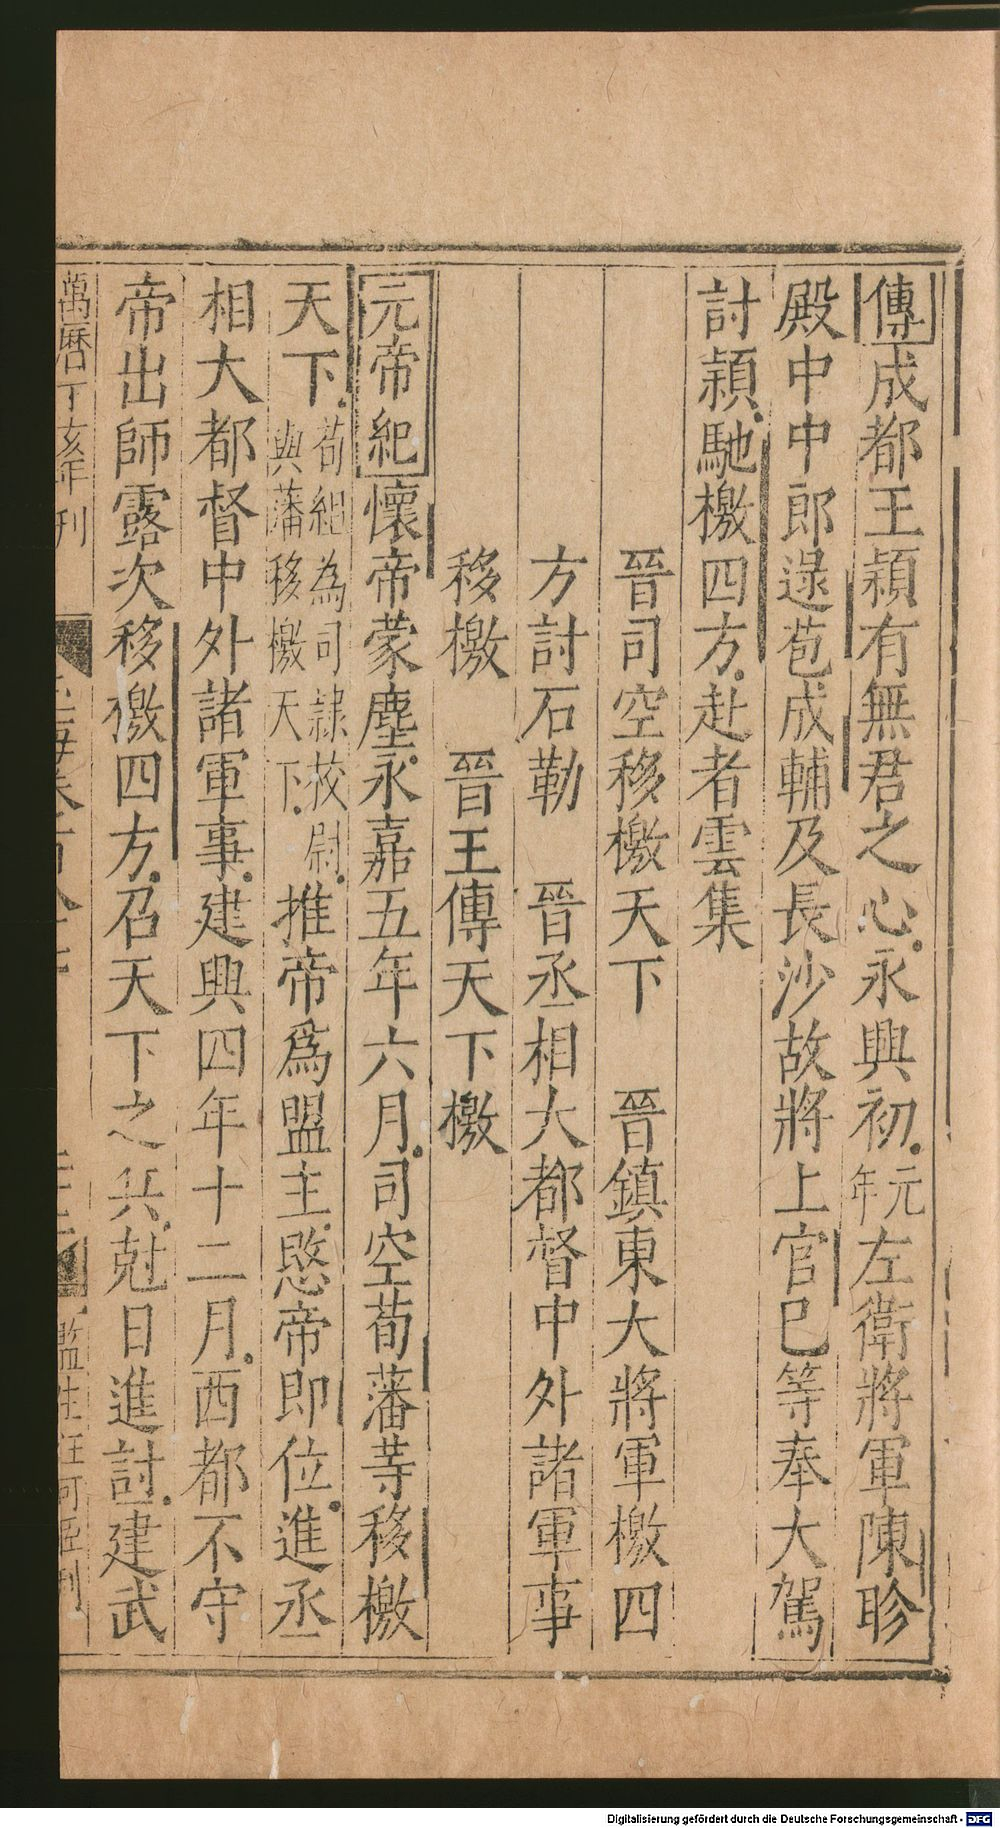 傳成都王穎有無君之心永興初元年左衛將軍陳眕
殿中中郎逯苞成輔及長沙故將上官巳等奉大駕
討穎馳檄四方赴者雲集
晉司空移檄天下　晉鎮東大將軍檄四
方討石勒　晉丞相大都督中外諸軍事
移檄　晉王傳天下檄
元帝紀懷帝蒙塵永嘉五年六月司空荀藩等移檄
天下荀組為司隷校尉與藩移檄天下推帝爲盟主愍帝即位進丞
相大都督中外諸軍事建興四年十二月西都不守
帝出師露次移檄四方召天下之兵尅日進討建武
萬曆丁亥年刊
監生汪可刊
Digitalisierung gefördert durch die Deutsche Forschungsgemeinschaft - DFG